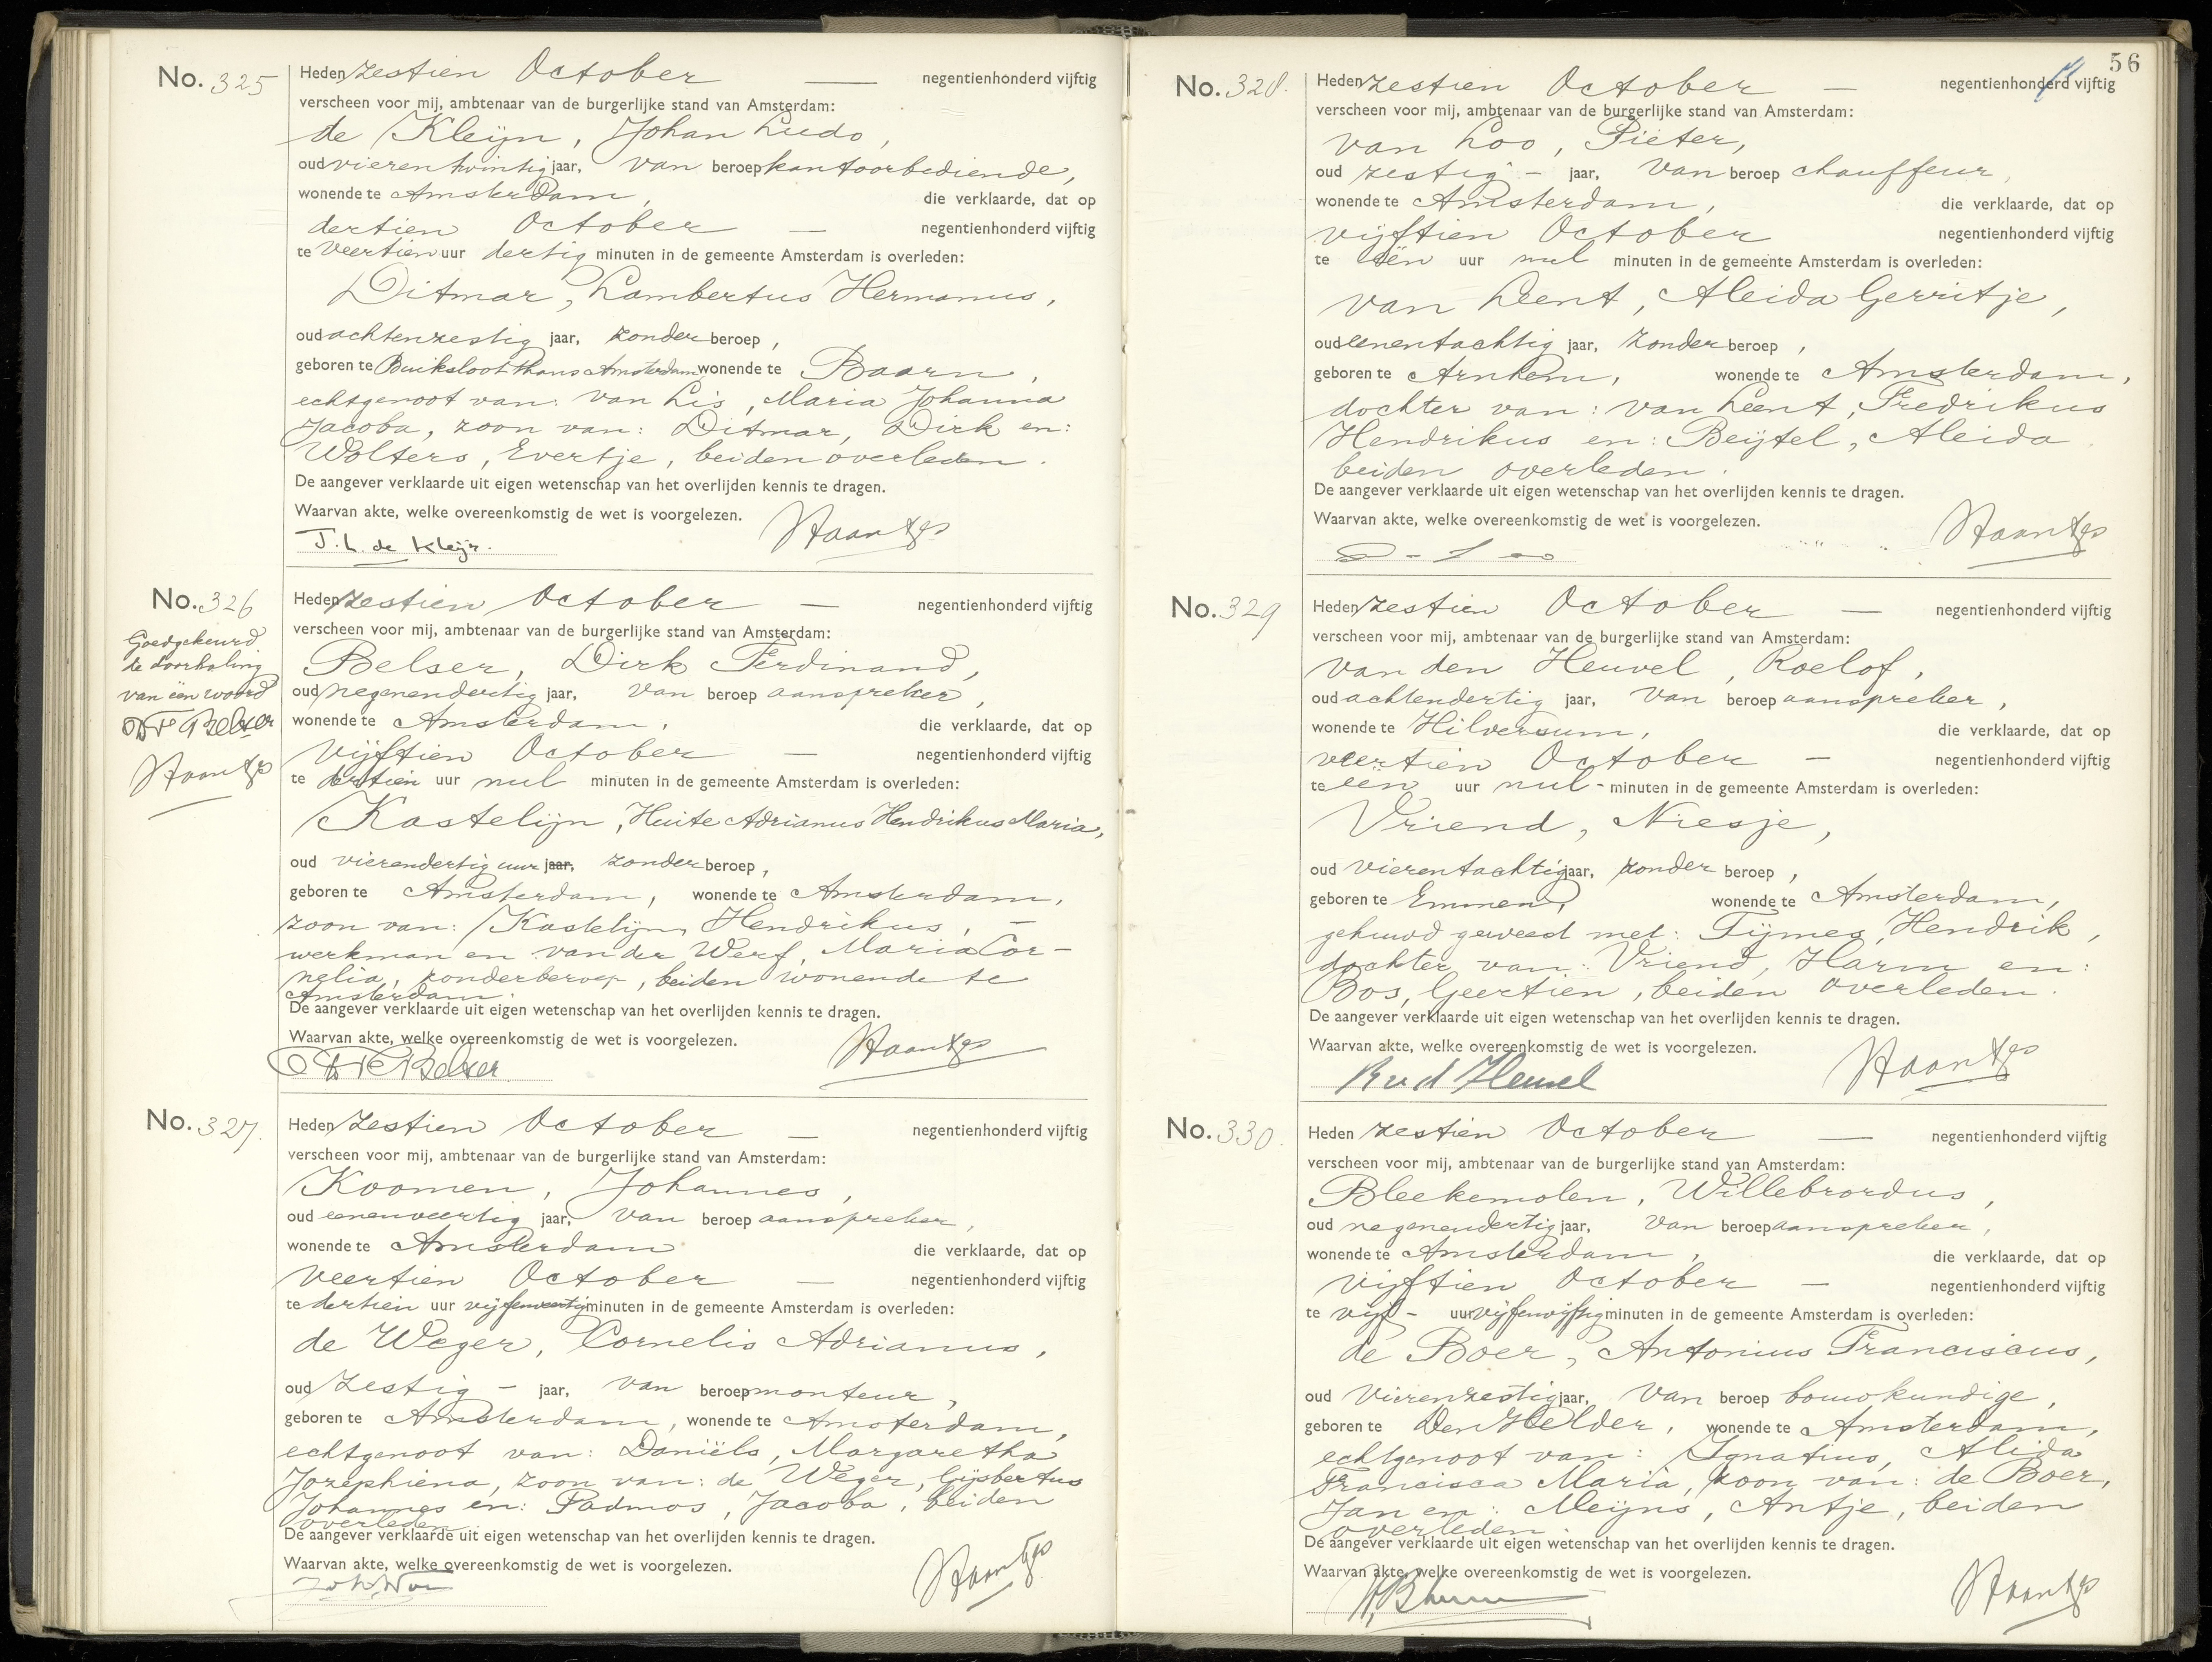 No. 325
Heden zestien October — negentienhonderd vijftig
verscheen voor mij, ambtenaar van de burgerlijke stand van Amsterdam:
de Kleijn, Johan Ludo,
oud vierentwintig jaar, van beroep kantoorbediende,
wonende te Amsterdam, die verklaarde, dat op
dertien October — negentienhonderd vijftig
te veertien uur dertig minuten in de gemeente Amsterdam is overleden:
Ditmar, Lambertus Hermanus,
oud achtenzestig jaar, zonder beroep,
geboren te Buiksloot thans Amsterdam wonende te Baarn,
echtgenoot van: van Lis, Maria Johanna
Jacoba, zoon van: Ditmar, Dirk en:
Wolters, Evertje, beiden overleden.
De aangever verklaarde uit eigen wetenschap van het overlijden kennis te dragen.
Waarvan akte, welke overeenkomstig de wet is voorgelezen.
J. L. de Kleijn. Haantjes
No. 326
Goedgekeurd
de doorhaling
van één woord
DF Belser
Haantjes
Heden zestien October — negentienhonderd vijftig
verscheen voor mij, ambtenaar van de burgerlijke stand van Amsterdam:
Belser, Dirk Ferdinand,
oud negenendertig jaar, van beroep aanspreker,
wonende te Amsterdam, die verklaarde, dat op
vijftien October — negentienhonderd vijftig
te dertien uur nul minuten in de gemeente Amsterdam is overleden:
Kastelijn, Huite Adrianus Hendrikus Maria,
oud vierendertig uur jaar, zonder beroep,
geboren te Amsterdam, wonende te Amsterdam,
zoon van: Kastelijn, Hendrikus, —
werkman en van der Werf, Maria Cor-
nelia, zonder beroep, beiden wonende te
Amsterdam.
De aangever verklaarde uit eigen wetenschap van het overlijden kennis te dragen.
Waarvan akte, welke overeenkomstig de wet is voorgelezen.
DF Belser Haantjes
No. 327.
Heden zestien October — negentienhonderd vijftig
verscheen voor mij, ambtenaar van de burgerlijke stand van Amsterdam:
Koomen, Johannes,
oud eenenveertig jaar, van beroep aanspreker,
wonende te Amsterdam die verklaarde, dat op
veertien October — negentienhonderd vijftig
te dertien uur vijfenveertig minuten in de gemeente Amsterdam is overleden:
de Weger, Cornelis Adrianus,
oud zestig - jaar, van beroep monteur,
geboren te Amsterdam, wonende te Amsterdam,
echtgenoot van: Daniëls, Margaretha
Jozephiena, zoon van: de Weger, Gijsbertus
Johannes en: Padmos, Jacoba, beiden
overleden.
De aangever verklaarde uit eigen wetenschap van het overlijden kennis te dragen.
Waarvan akte, welke overeenkomstig de wet is voorgelezen.
Haantjes
56
No. 328.
Heden zestien October — negentienhonderd vijftig
verscheen voor mij, ambtenaar van de burgerlijke stand van Amsterdam:
van Loo, Pieter,
oud zestig - jaar, van beroep chauffeur,
wonende te Amsterdam, die verklaarde, dat op
vijftien October negentienhonderd vijftig
te één uur nul minuten in de gemeente Amsterdam is overleden:
van Leent, Aleida Gerritje,
oud eenentachtig jaar, zonder beroep,
geboren te Arnhem, wonende te Amsterdam,
dochter van: van Leent, Fredrikus
Hendrikus en: Beijtel, Aleida
beiden overleden.
De aangever verklaarde uit eigen wetenschap van het overlijden kennis te dragen.
Waarvan akte, welke overeenkomstig de wet is voorgelezen.
Haantjes
No. 329
Heden zestien October — negentienhonderd vijftig
verscheen voor mij, ambtenaar van de burgerlijke stand van Amsterdam:
van den Heuvel, Roelof,
oud achtendertig jaar, van beroep aanspreker,
wonende te Hilversum, die verklaarde, dat op
veertien October — negentienhonderd vijftig
te één uur nul - minuten in de gemeente Amsterdam is overleden:
Vriend, Niesje,
oud vierentachtig jaar, zonder beroep,
geboren te Emmen, wonende te Amsterdam,
gehuwd geweest met: Tijmes, Hendrik,
dochter van: Vriend, Harm en:
Bos, Geertien, beiden overleden.
De aangever verklaarde uit eigen wetenschap van het overlijden kennis te dragen.
Waarvan akte, welke overeenkomstig de wet is voorgelezen.
R v d Heuvel Haantjes
No. 330.
Heden zestien October — negentienhonderd vijftig
verscheen voor mij, ambtenaar van de burgerlijke stand van Amsterdam:
Bleekemolen, Willebrordus,
oud negenendertig jaar, van beroep aanspreker,
wonende te Amsterdam, die verklaarde, dat op
vijftien October — negentienhonderd vijftig
te vijf - uur vijfenvijftig minuten in de gemeente Amsterdam is overleden:
de Boer, Antonius Franciscus,
oud vierenzestig jaar, van beroep bouwkundige,
geboren te Den Helder, wonende te Amsterdam,
echtgenoot van: Ignatius, Alida
Francisca Maria, zoon van: de Boer,
Jan en: Meijns, Antje, beiden
overleden.
De aangever verklaarde uit eigen wetenschap van het overlijden kennis te dragen.
Waarvan akte, welke overeenkomstig de wet is voorgelezen.
Haantjes